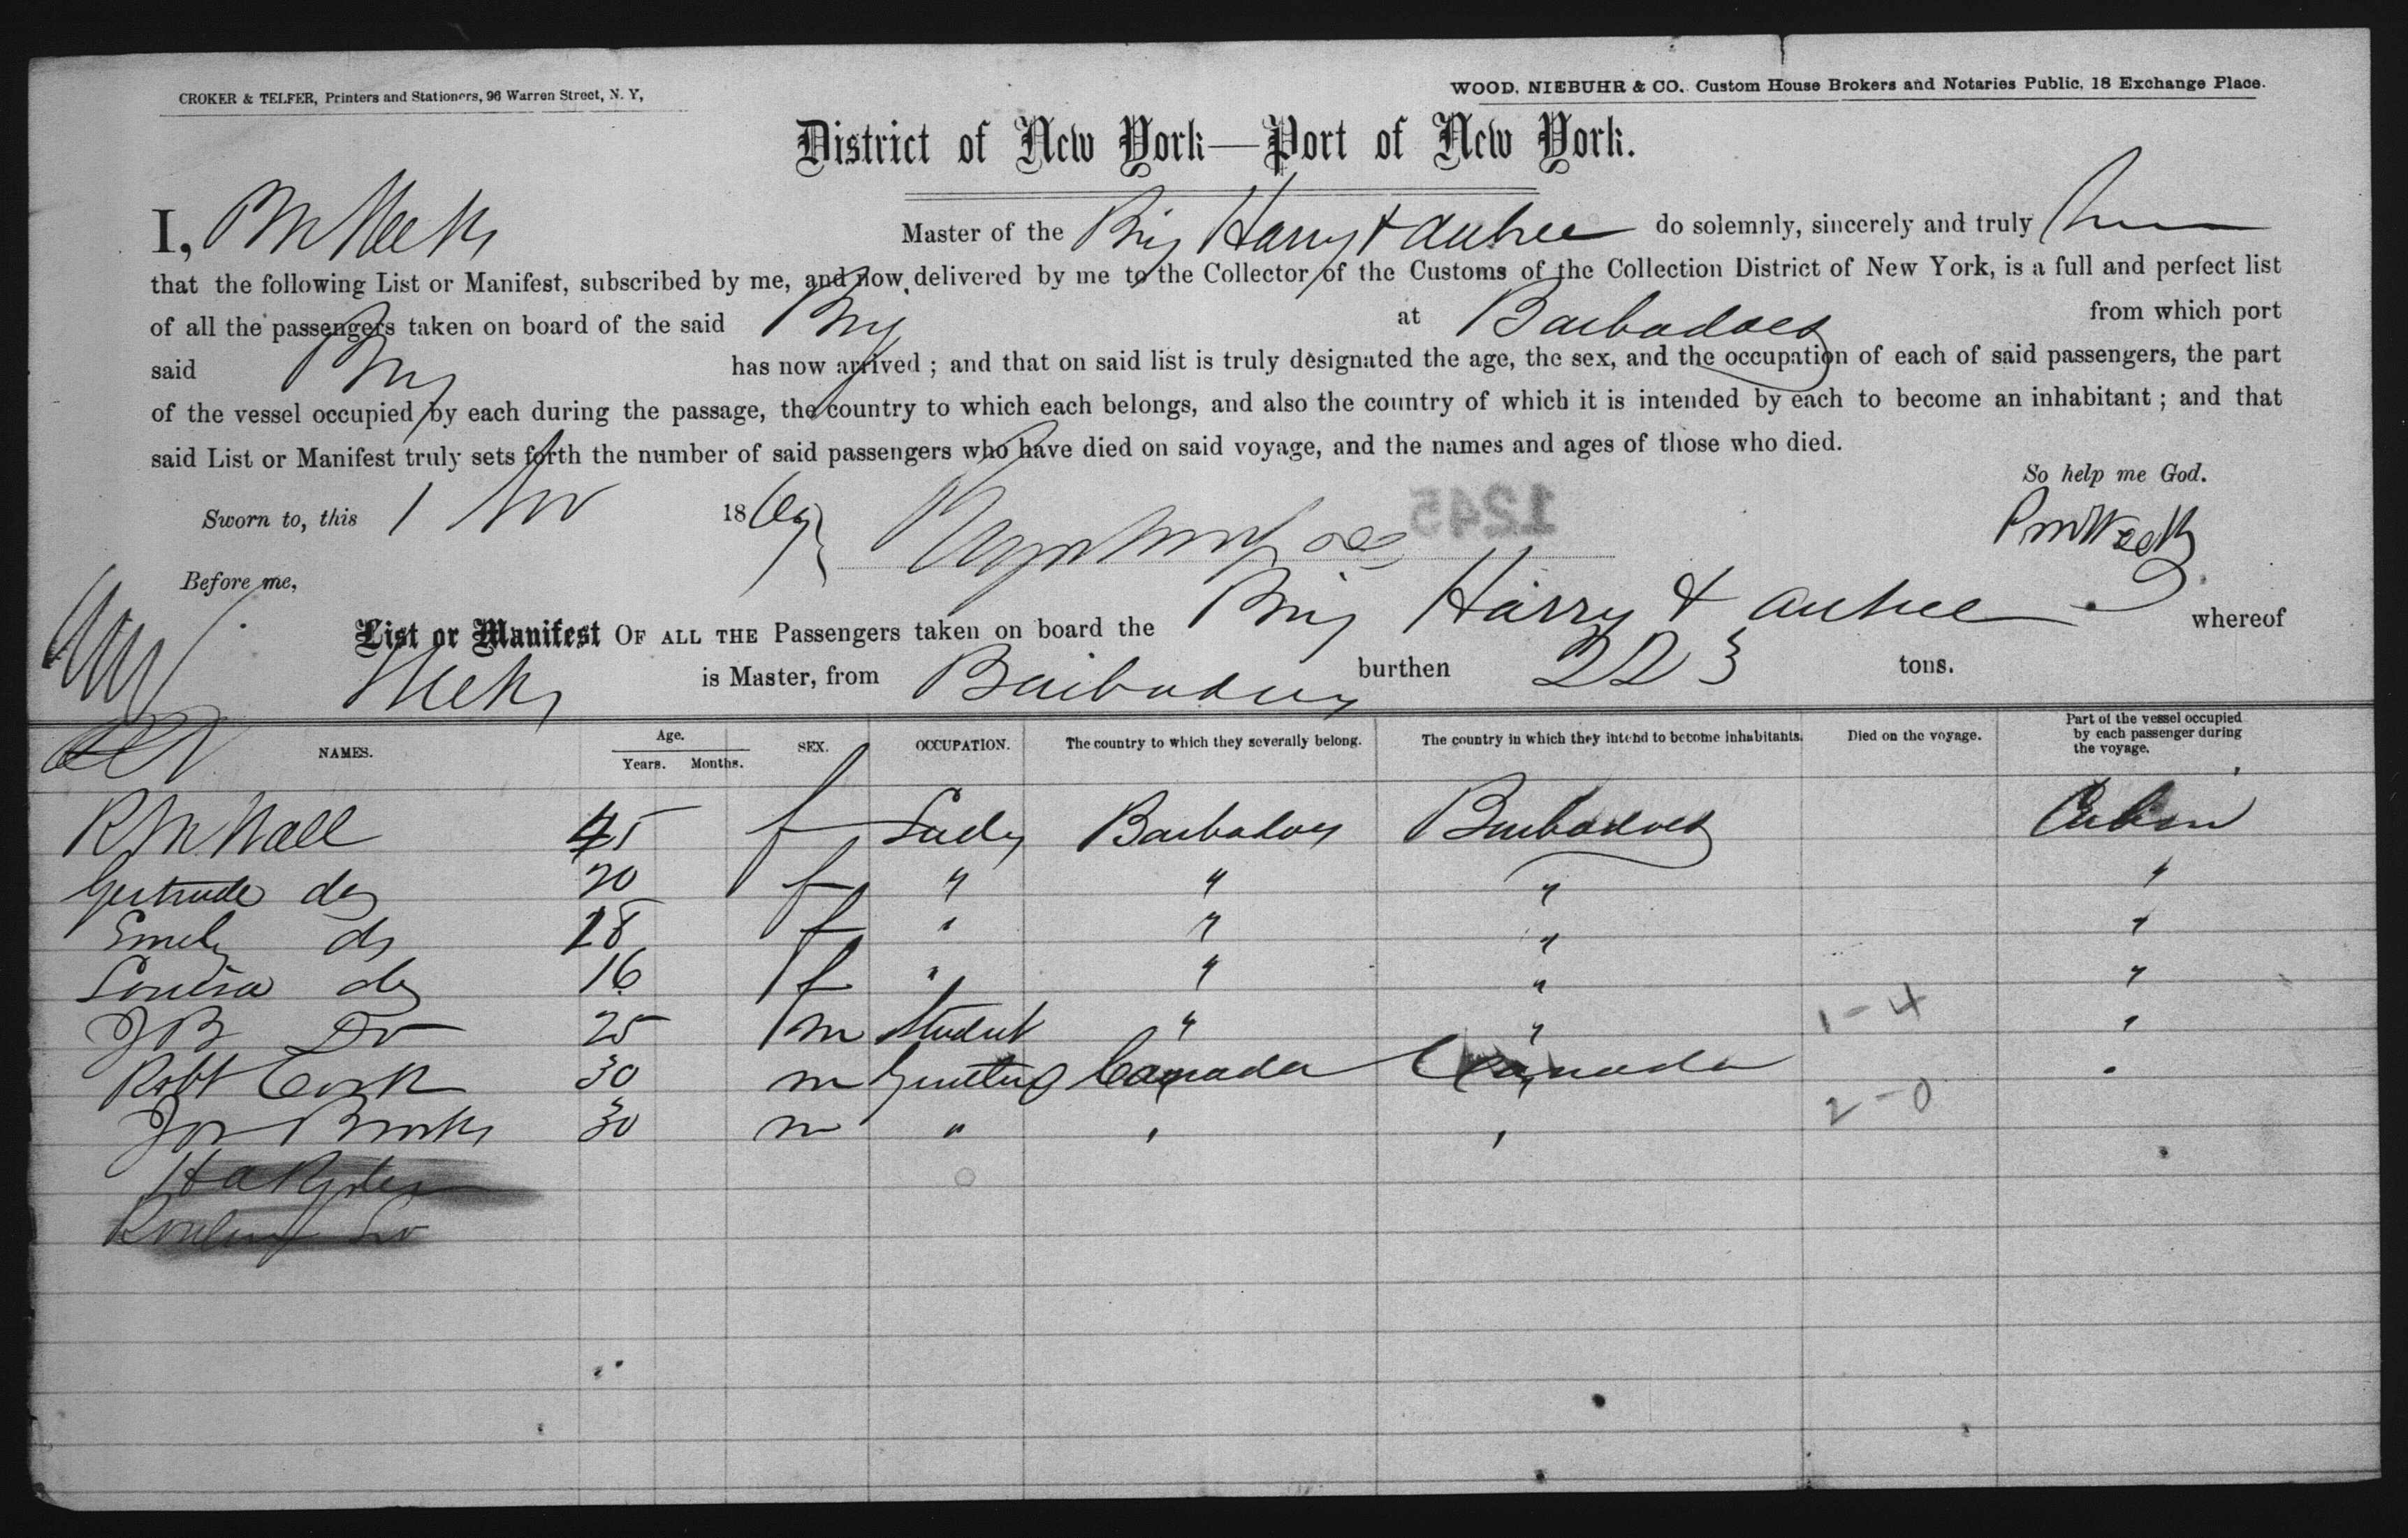 CROKER & TELFER, Printers and Stationers, 96 Warren Street, N. Y,
WOOD, NIEBUHR & CO. Custom House Brokers and Notaries Public, 18 Exchange Place.
District of New York—Port of New York.
I, Master of the Brig Harry & Aubree do solemnly, sincerely and truly
that the following List or Manifest, subscribed by me, and now delivered by me to the Collector of the Customs of the Collection District of New York, is a full and perfect list
of all the passengers taken on board of the said Brig at Barbadoes from which port
said Brig has now arrived ; and that on said list is truly designated the age, the sex, and the occupation of each of said passengers, the part
of the vessel occupied by each during the passage, the country to which each belongs, and also the country of which it is intended by each to become an inhabitant ; and that
said List or Manifest truly sets forth the number of said passengers who have died on said voyage, and the names and ages of those who died.
So help me God.
Sworn to, this 1 Nov 1869
1245
Before me,
List or Manifest OF ALL THE Passengers taken on board the Brig Harry & Aubree whereof
is Master, from Barbadoes burthen 223 tons.
NAMES. Age. Years. Months. SEX. OCCUPATION. The country to which they severally belong. The country in which they intend to become inhabitants. Died on the voyage. Part of the vessel occupied by each passenger during the voyage.
45 f Lady Barbadoes Barbadoes Cabin
Gertrude do 20 f " " " "
Emely do 18 f " " " "
Louisa do 16 f " " " "
J B Do 25 m Student " " 1-4 "
Robt Cork 30 m Canada Canada "
Brooks 30 m " " " 2-0